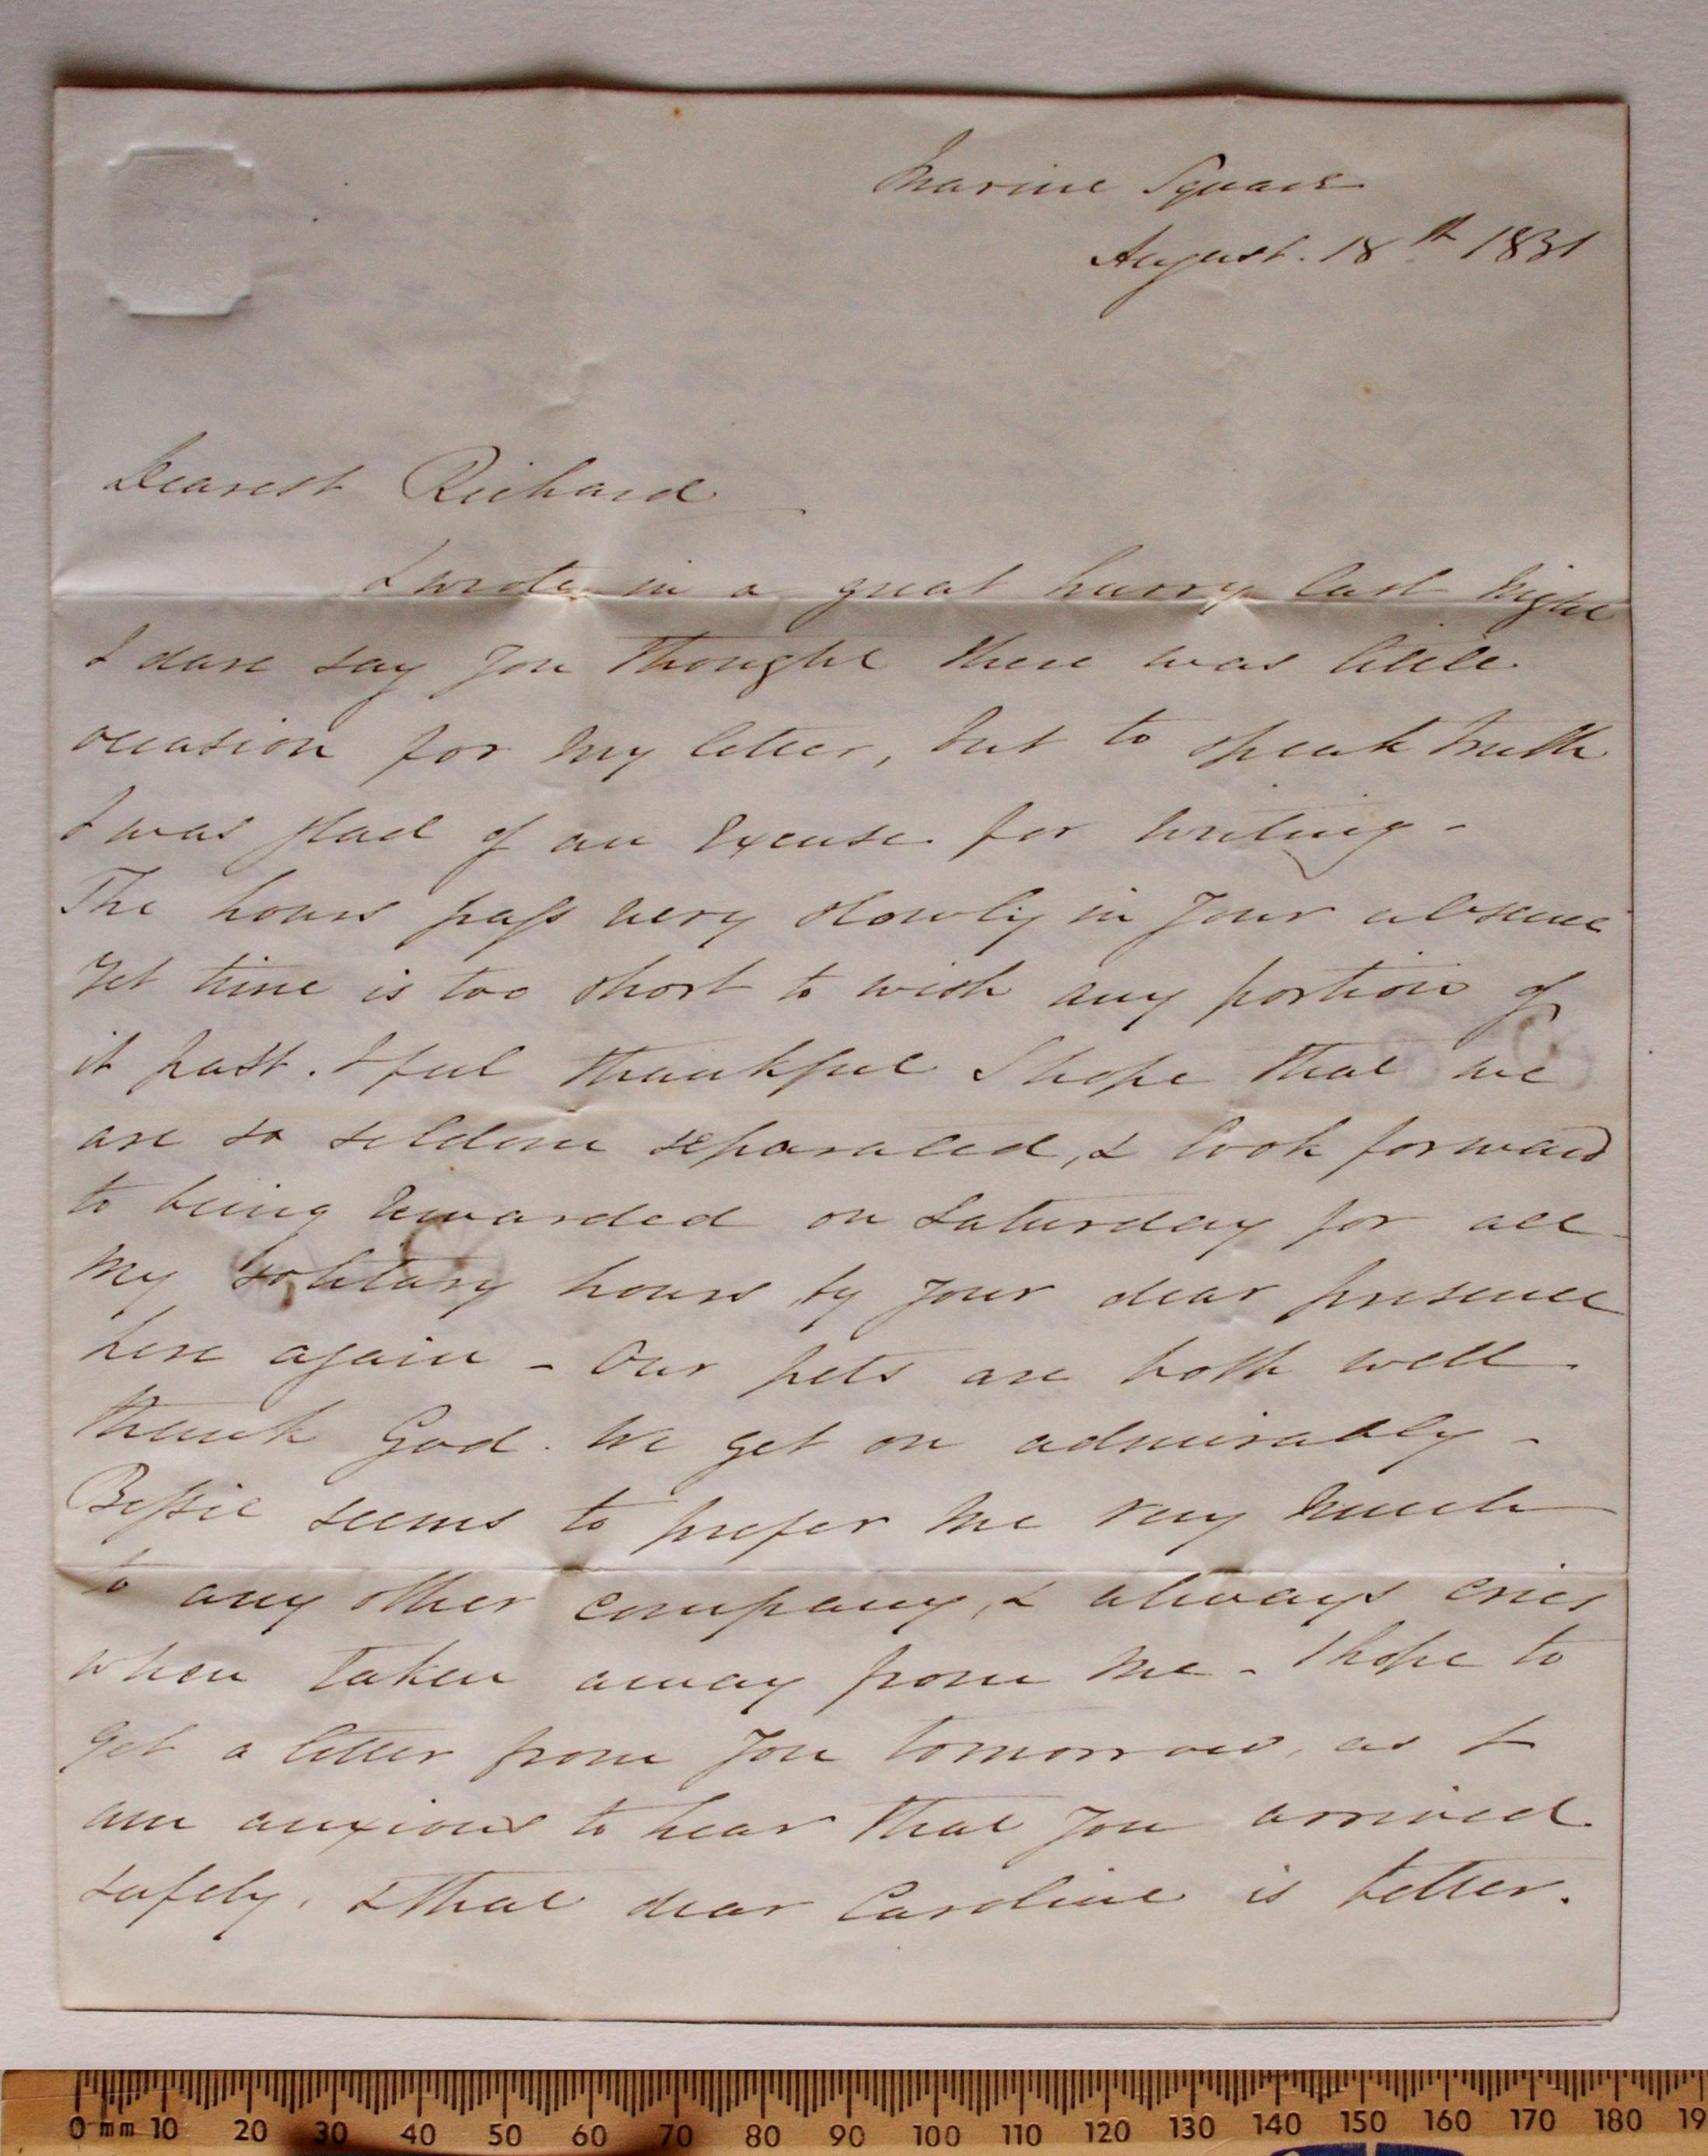 Marine Square
August. 18th 1831
Dearest Richard
I wrote in a great hurry last night
I dare say you thought there was little
occasion for my letter, but to speak truth
I was glad of an excuse for writing -
The hours pass very slowly in your absence
yet time is too short to wish any portion of
it past. I feel thankful I hope that we
are so seldom separated, & look forward
to being rewarded on Saturday for all
my solitary hours by your dear presence
here again - Our pets are both well
thank God. We get on admirably -
Bessie seems to prefer me very much
to any other company, & always cries
when taken away from me - I hope to
get a letter from you tomorrow, as I
am anxious to hear that you arrived
safely, & that dear Caroline is better.
0 mm 10 20 30 40 50 60 70 80 90 100 110 120 130 140 150 160 170 180 19